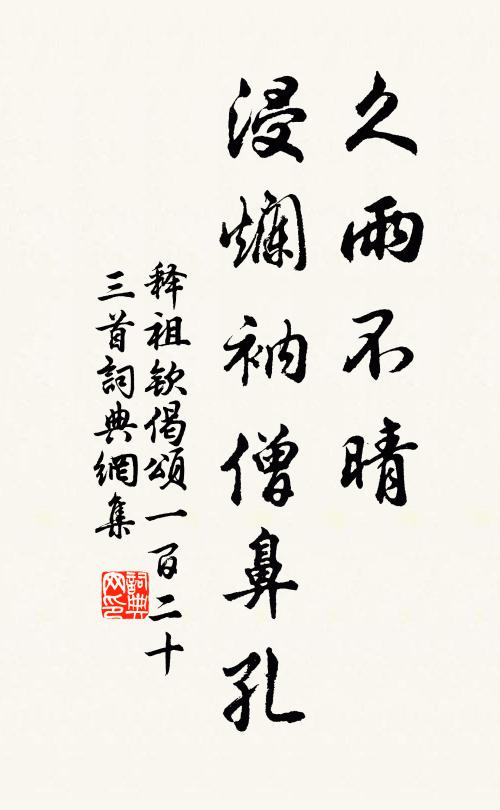 久雨不晴
浸爛衲僧鼻孔
释祖钦偈頌一百二十
三首詞典網集
詞典
网印